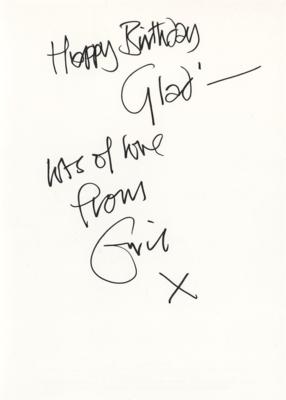 Happy Birthday
Glad' —
lots of love
from
X